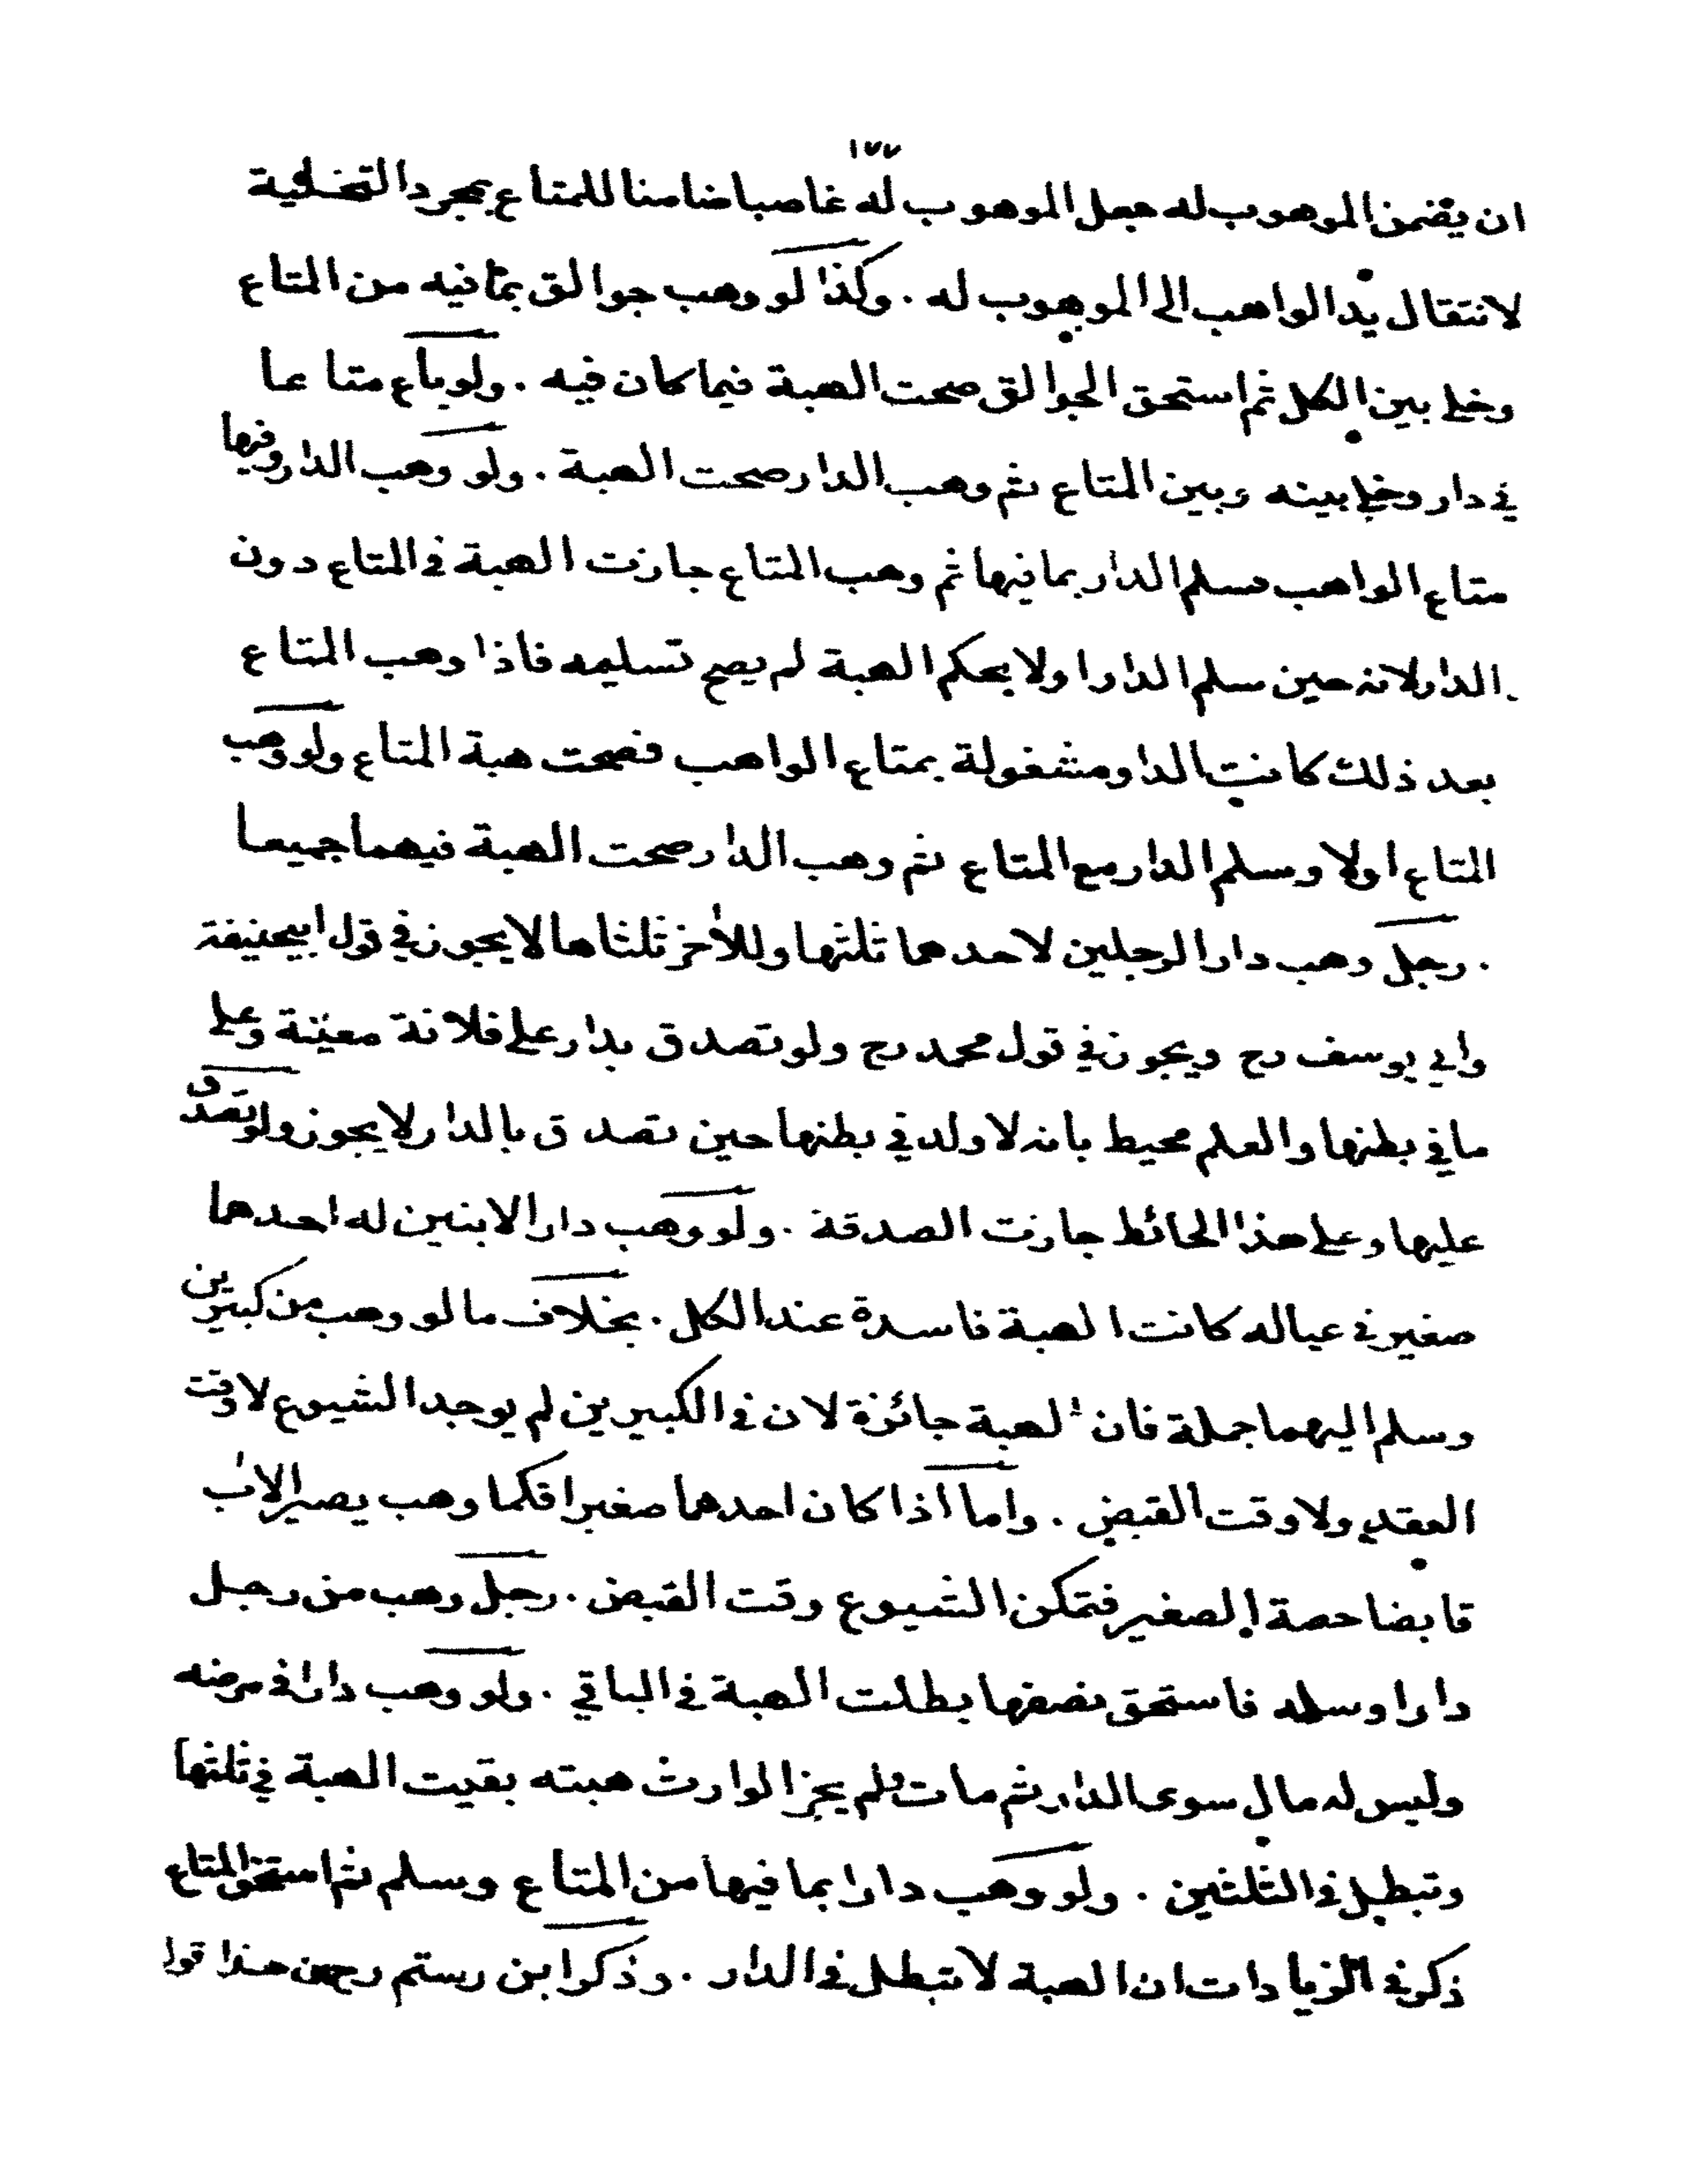 ١٧٧
ان يضمن الموهوب له جعل الموهوب له غاصبا ضامنا للمتاع بمجرد التخلية
لانتقال يد الواهب الى الموهوب له . وكذا لو وهب جوالق بما فيه من المتاع
وخلى بين الكل ثم استحق الجوالق صحت الهبة فيما كان فيه . ولو باع متاعا
في دار وخلى بينه وبين المتاع ثم وهب الدار صحت الهبة . ولو وهب الدار وفيها
متاع الواهب فسلم الدار بما فيها ثم وهب المتاع جازت الهبة في المتاع دون
الدار لانه حين سلم الدار اولا بحكم الهبة لم يصح تسليمه فاذا وهب المتاع
بعد ذلك كانت الدار مشغولة بمتاع الواهب فصحت هبة المتاع ولو وهب
المتاع اولا وسلم الدار مع المتاع ثم وهب الدار صحت الهبة فيهما جميعا
. رجل وهب دارا لرجلين لاحدهما ثلثها وللأخر ثلثاها لا يجوز في قول ابيحنيفة
وابي يوسف رح ويجوز في قول محمد رح ولو تصدق بدار على فلانة معينة وعلى
ما في بطنها والعلم محيط بانه لا ولد في بطنها حين تصدق بالدار لا يجوز ولو تصدق
عليها وعلى هذا الحائط جازت الصدقة . ولو وهب دارا لابنين له احدهما
صغير في عياله كانت الهبة فاسدة عند الكل . بخلاف ما لو وهب من كبيرين
وسلم اليهما جملة فان الهبة جائزة لان في الكبيرين لم يوجد الشيوع لا وقت
العقد ولا وقت القبض . واما اذا كان احدهما صغيرا فكما وهب يصير الاب
قابضا حصة الصغير فتمكن الشيوع وقت القبض . رجل وهب من رجل
دارا وسلمه فاستحق نصفها بطلت الهبة في الباقي . ولو وهب دارا في مرضه
وليس له مال سوى الدار ثم مات ولم يجز الوارث هبته بقيت الهبة في ثلثها
وتبطل في الثلثين . ولو وهب دارا بما فيها من المتاع وسلم ثم استحق المتاع
ذكر في الزيادات ان الهبة لا تبطل في الدار . وذكر ابن رستم رح هذا قول